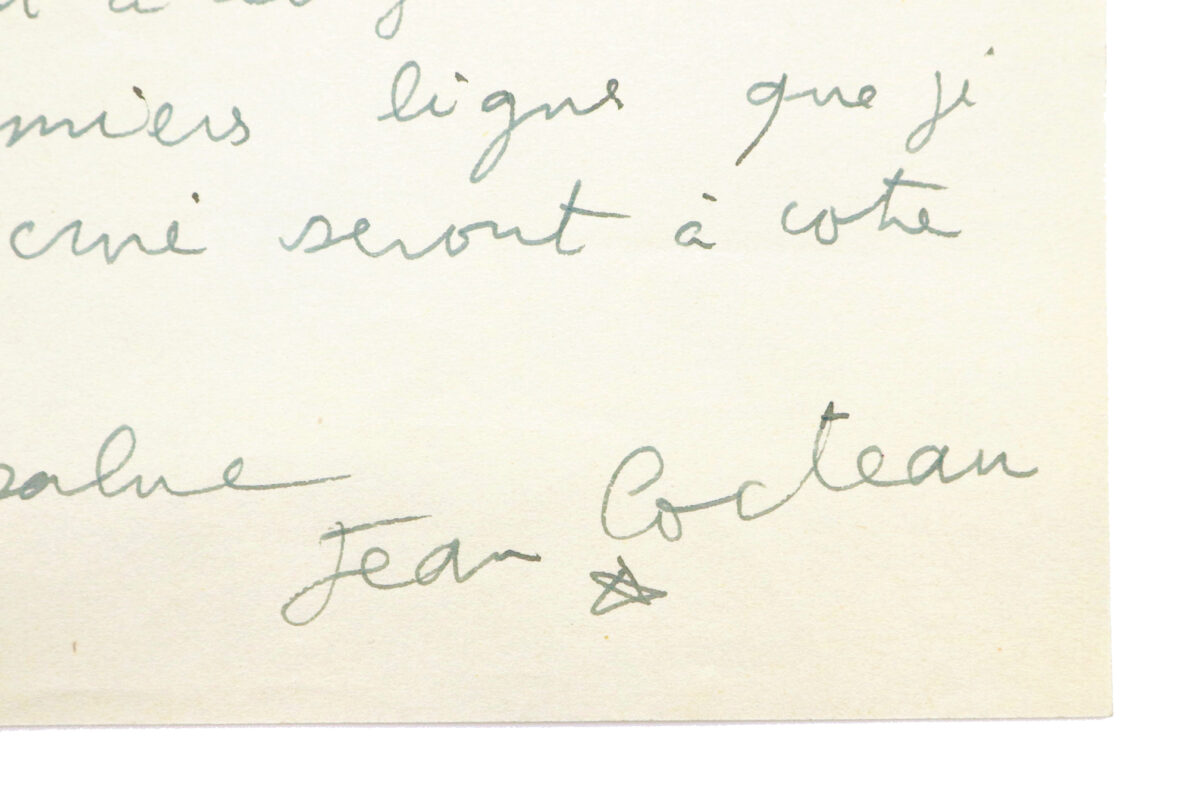 miers lignes que j'ai
seront à côté
salue
Jean Cocteau